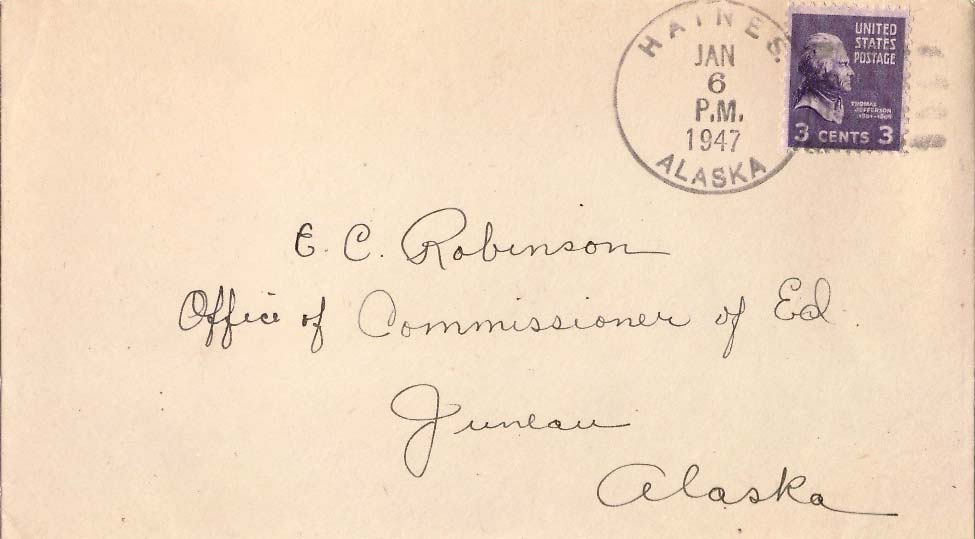 HAINES.
JAN
6
P.M.
1947
ALASKA
UNITED
STATES
POSTAGE
THOMAS
JEFFERSON
1801-1809
3 CENTS 3
E. C. Robinson
Office of Commissioner of Ed
Juneau
Alaska